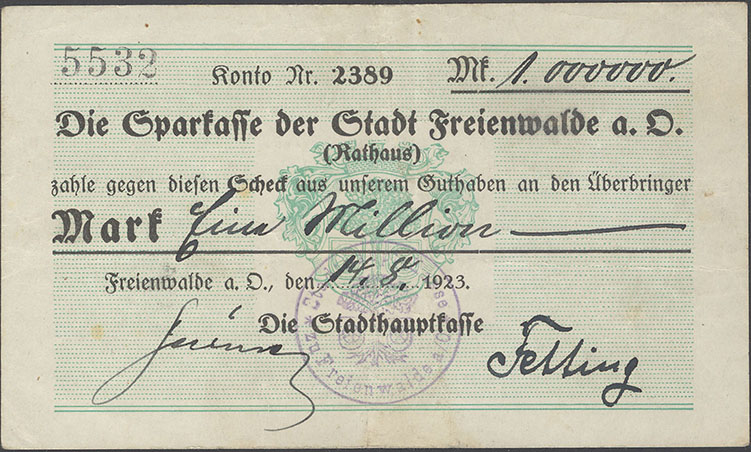 5532
Konto Nr. 2389 Mk. 1.000000.
Die Sparkasse der Stadt Freienwalde a. O.
(Rathaus)
zahle gegen diesen Scheck aus unserem Guthaben an den Überbringer
Mark Eine Million
Freienwalde a. O., den 14. 8. 1923.
Die Stadthauptkasse
Fetting
zu Freienwalde a/O.